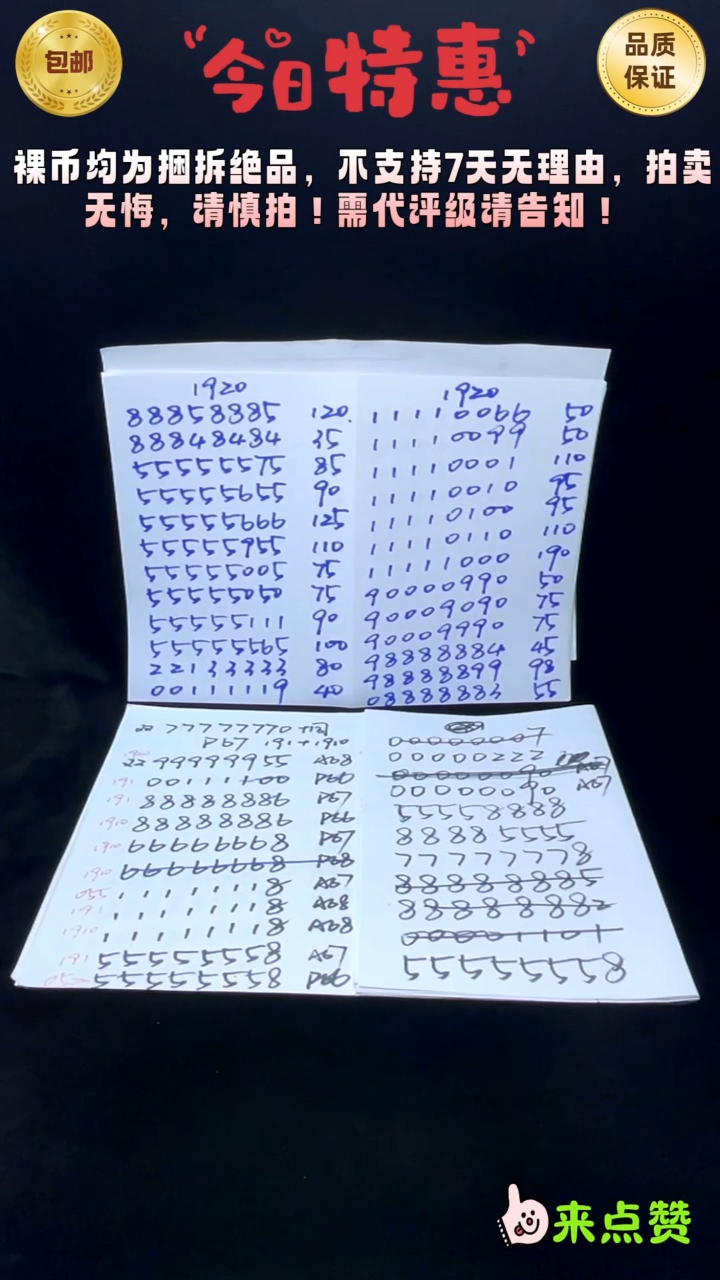 包邮
“今日特惠”
品质
保证
裸币均为捆拆绝品，不支持7天无理由，拍卖
无悔，请慎拍！需代评级请告知！
1920
88858885 120
88848484 35
55555575 85
55555655 90
55555666 125
55555955 110
55555005 75
55555050 75
55555111 90
55555565 100
22133333 80
00111119 40
1920
11110066 50
11110099 50
11110001 110
11110010 95
11110100 95
11110110 110
11111000 190
90000990 50
90009090 75
90009990 75
98888884 45
98888899 98
08888883 55
77777770
P67 191+1910
99999955 A68
191 00111100 P66
191 88888886 P67
1910 88888886 P66
1910 66666668 P67
1910 66666668 P68
055 11111118 A67
191 11111118 A68
1910 11111118 A68
191 55555558 A67
55555558 P66
00000007
00000222
00000090 A67
00000090 A67
55558888
88885555
77777778
88888885
88888882
00001101
55555558
来点赞